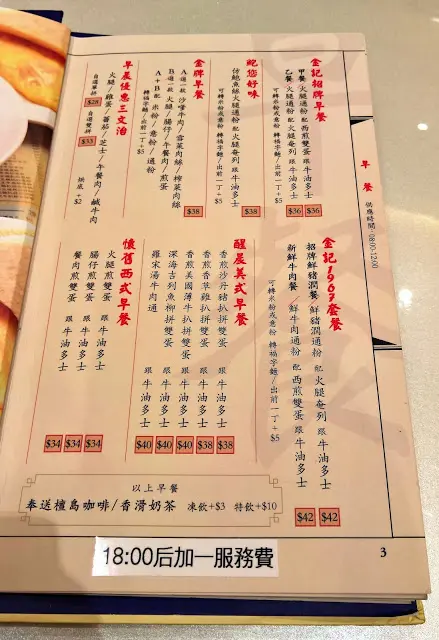 早餐
供應時間：08:00-12:00
金記招牌早餐
甲餐 火腿通粉 配 西煎雙蛋 跟 牛油多士 $36
乙餐 火腿通粉 配 火腿奄列 跟 牛油多士 $36
可轉米粉或意粉 轉福字麵/出前一丁+$5
鮑您好味
仿鮑魚絲火腿通粉 配 火腿奄列 跟 牛油多士 $38
可轉米粉或意粉 轉福字麵/出前一丁+$5
金牌早餐
A 選一款 沙嗲牛肉/雪菜肉絲/榨菜肉絲
B 選一款 火腿/腸仔/午餐肉/煎蛋
A+B 配 米粉/意粉/通粉
轉福字麵/出前一丁+$5
$38
早晨優惠三文治
火腿/雞蛋/蕃茄/芝士/午餐肉/鹹牛肉
自選單拼 $28 自選雙拼 $33 烘底+$2
金記1967套餐
招牌鮮豬潤餐/鮮豬潤通粉 配 火腿奄列 跟 牛油多士 $42
新鮮牛肉餐/鮮牛肉通粉 配 西煎雙蛋 跟 牛油多士 $42
可轉米粉或意粉 轉福字麵/出前一丁+$5
醒晨美式早餐
香煎沙丹豬扒拼雙蛋 跟 牛油多士 $38
香煎香草雞扒拼雙蛋 跟 牛油多士 $38
香煎美國薄牛扒拼雙蛋 跟 牛油多士 $40
深海吉列魚柳拼雙蛋 跟 牛油多士 $40
羅宋湯牛肉通 跟 牛油多士 $40
懷舊西式早餐
火腿煎雙蛋 跟 牛油多士 $34
腸仔煎雙蛋 跟 牛油多士 $34
餐肉煎雙蛋 跟 牛油多士 $34
以上早餐
奉送檀島咖啡/香滑奶茶 凍飲+$3 特飲+$10
18:00后加一服務費
3